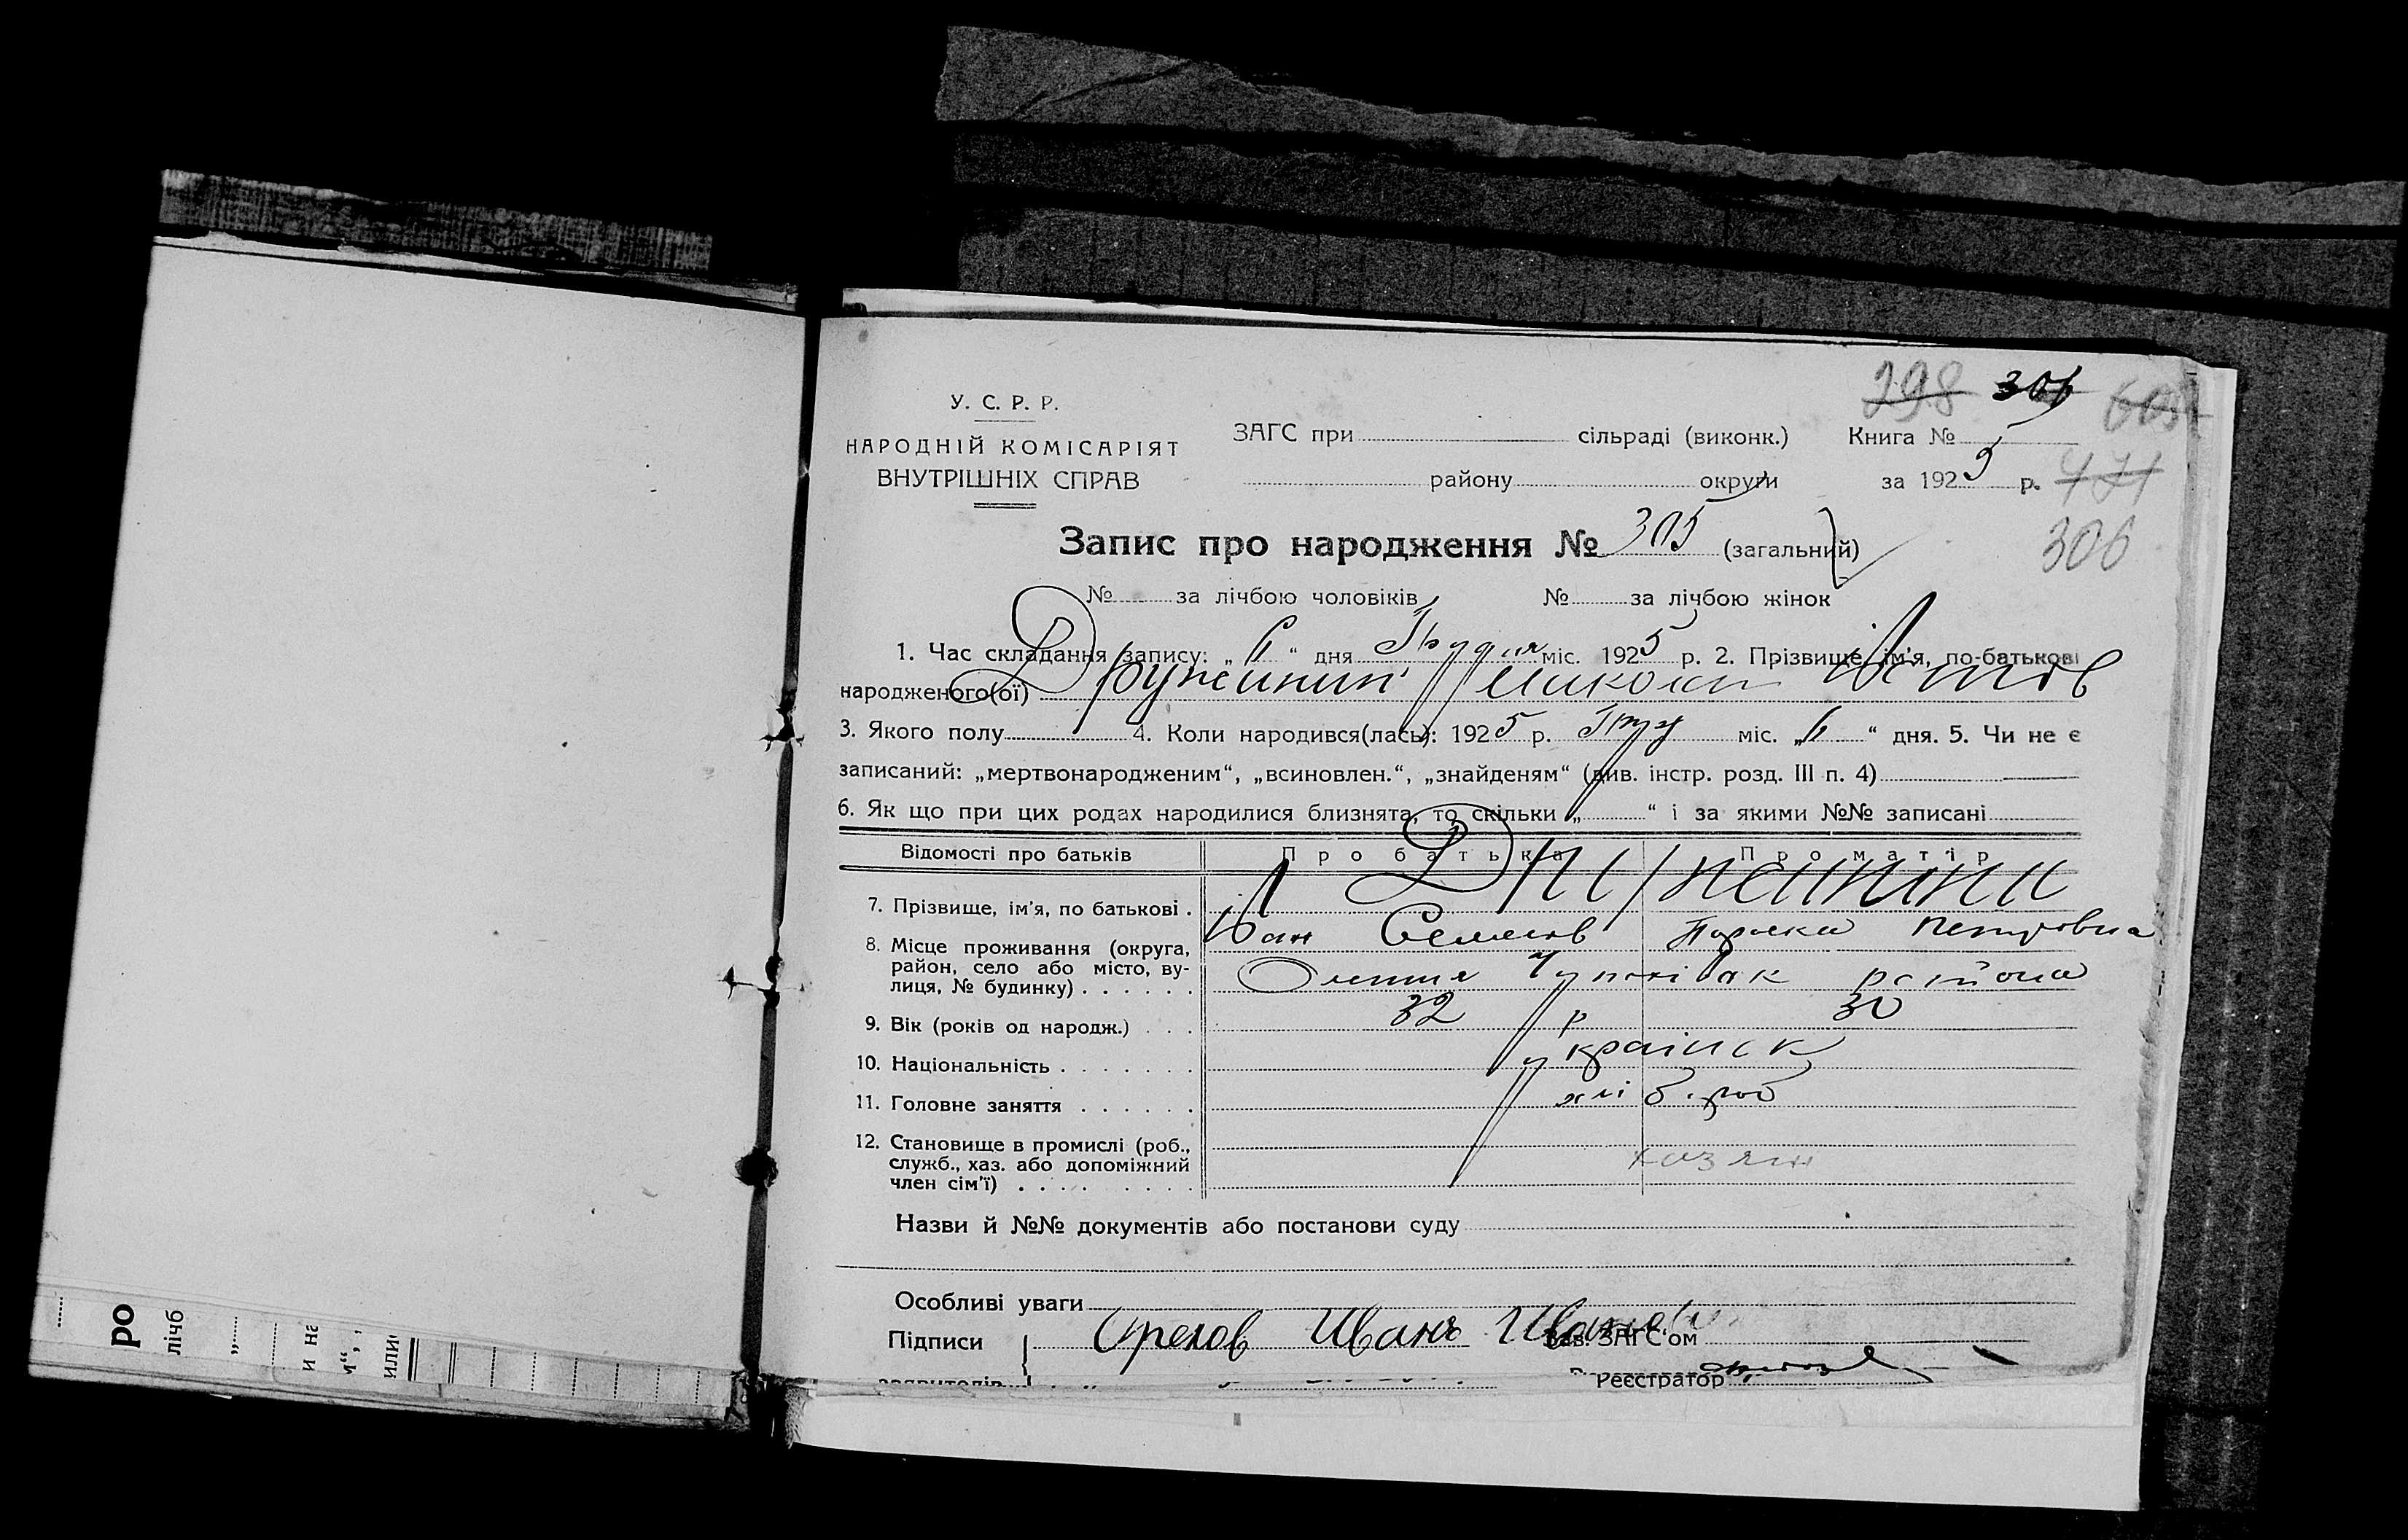 298 306
У. С. Р. Р.
НАРОДНІЙ КОМІСАРІЯТ
ВНУТРІШНІХ СПРАВ
ЗАГС при сільраді (виконк.) Книга №
району округи за 1925 р. 471
306
Запис про народження № 305 (загальний)
№ за лічбою чоловіків № за лічбою жінок
1. Час складання запису: „ “ дня Грудня міс. 1925 р. 2. Прізвище, ім'я, по-батькові
народженого(ої) Микола
3. Якого полу 4. Коли народився(лась): 1925 р. Груд міс. „ “ дня. 5. Чи не є
записаний: „мертвонародженим“, „всиновлен.“, „знайденям“ (див. інстр. розд. III п. 4)
6. Як що при цих родах народилися близнята, то скільки „ “ і за якими №№ записані
Відомості про батьків Про батька Про матір
7. Прізвище, ім'я, по батькові .
Іван Семенов Параска Петровна
8. Місце проживання (округа,
район, село або місто, ву-
лиця, № будинку) . . . . . . района
9. Вік (років од народж.) . . . 32 р 30
10. Національність . . . . . . . україиск
11. Головне заняття . . . . . . хліб.роб
12. Становище в промислі (роб.,
служб., хаз. або допоміжний
член сім'ї) . . . . . . . . . хазяин
Назви й №№ документів або постанови суду
Особливі уваги
Підписи Орехов Иванъ Зав. ЗАГС'ом
заявителів Реєстратор
ро
лічб
и на
м“,
или